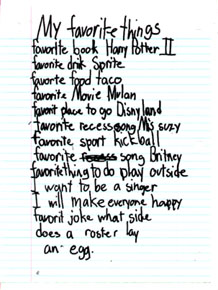 My favorite things
favorite book Harry Potter II
favorite drink Sprite
favorte food taco
favorite Movie Mulan
favorit place to go Disneyland
favorite recess song Ms suzy
favorite sport kickball
favorite song Britney
favorite thing to do play outside
I want to be a singer
I will make everyone happy
favorit joke what side
does a roster lay
an egg.